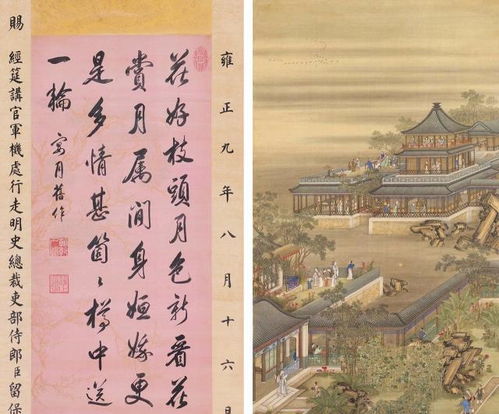 雍正九年八月十六日
花好枝頭月色新看花
賞月屬閒身姮娥更
是多情甚箇〻樽中送
一輪
月舊作
賜經筵講官軍機處行走明史總裁吏部侍郎臣留保